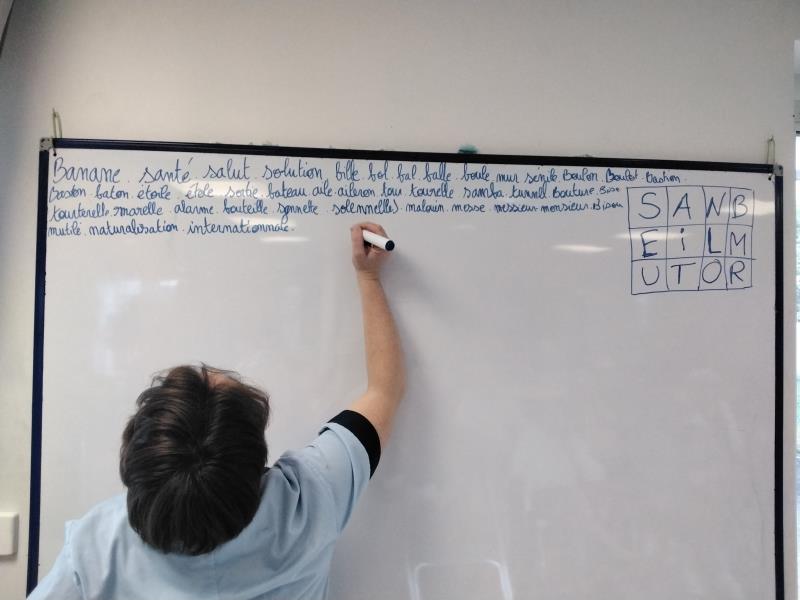 Banane. santé. salut. solution, bille bol. bal. balle. boule. mur. sénile. Boulon. Boulot. Bastion.
Baston. baton. étoile. étole. sortie. bateau. aile. aileron. tau. tourelle. samba. tunnel. Bouture. Bise
tourterelle. marelle. alarme. bouteille. sonnette. solennelle). malouin. messe. messieur. monsieur. Bison
mutilé. naturalisation. internationnale.
S A N B
E i L M
U T O R